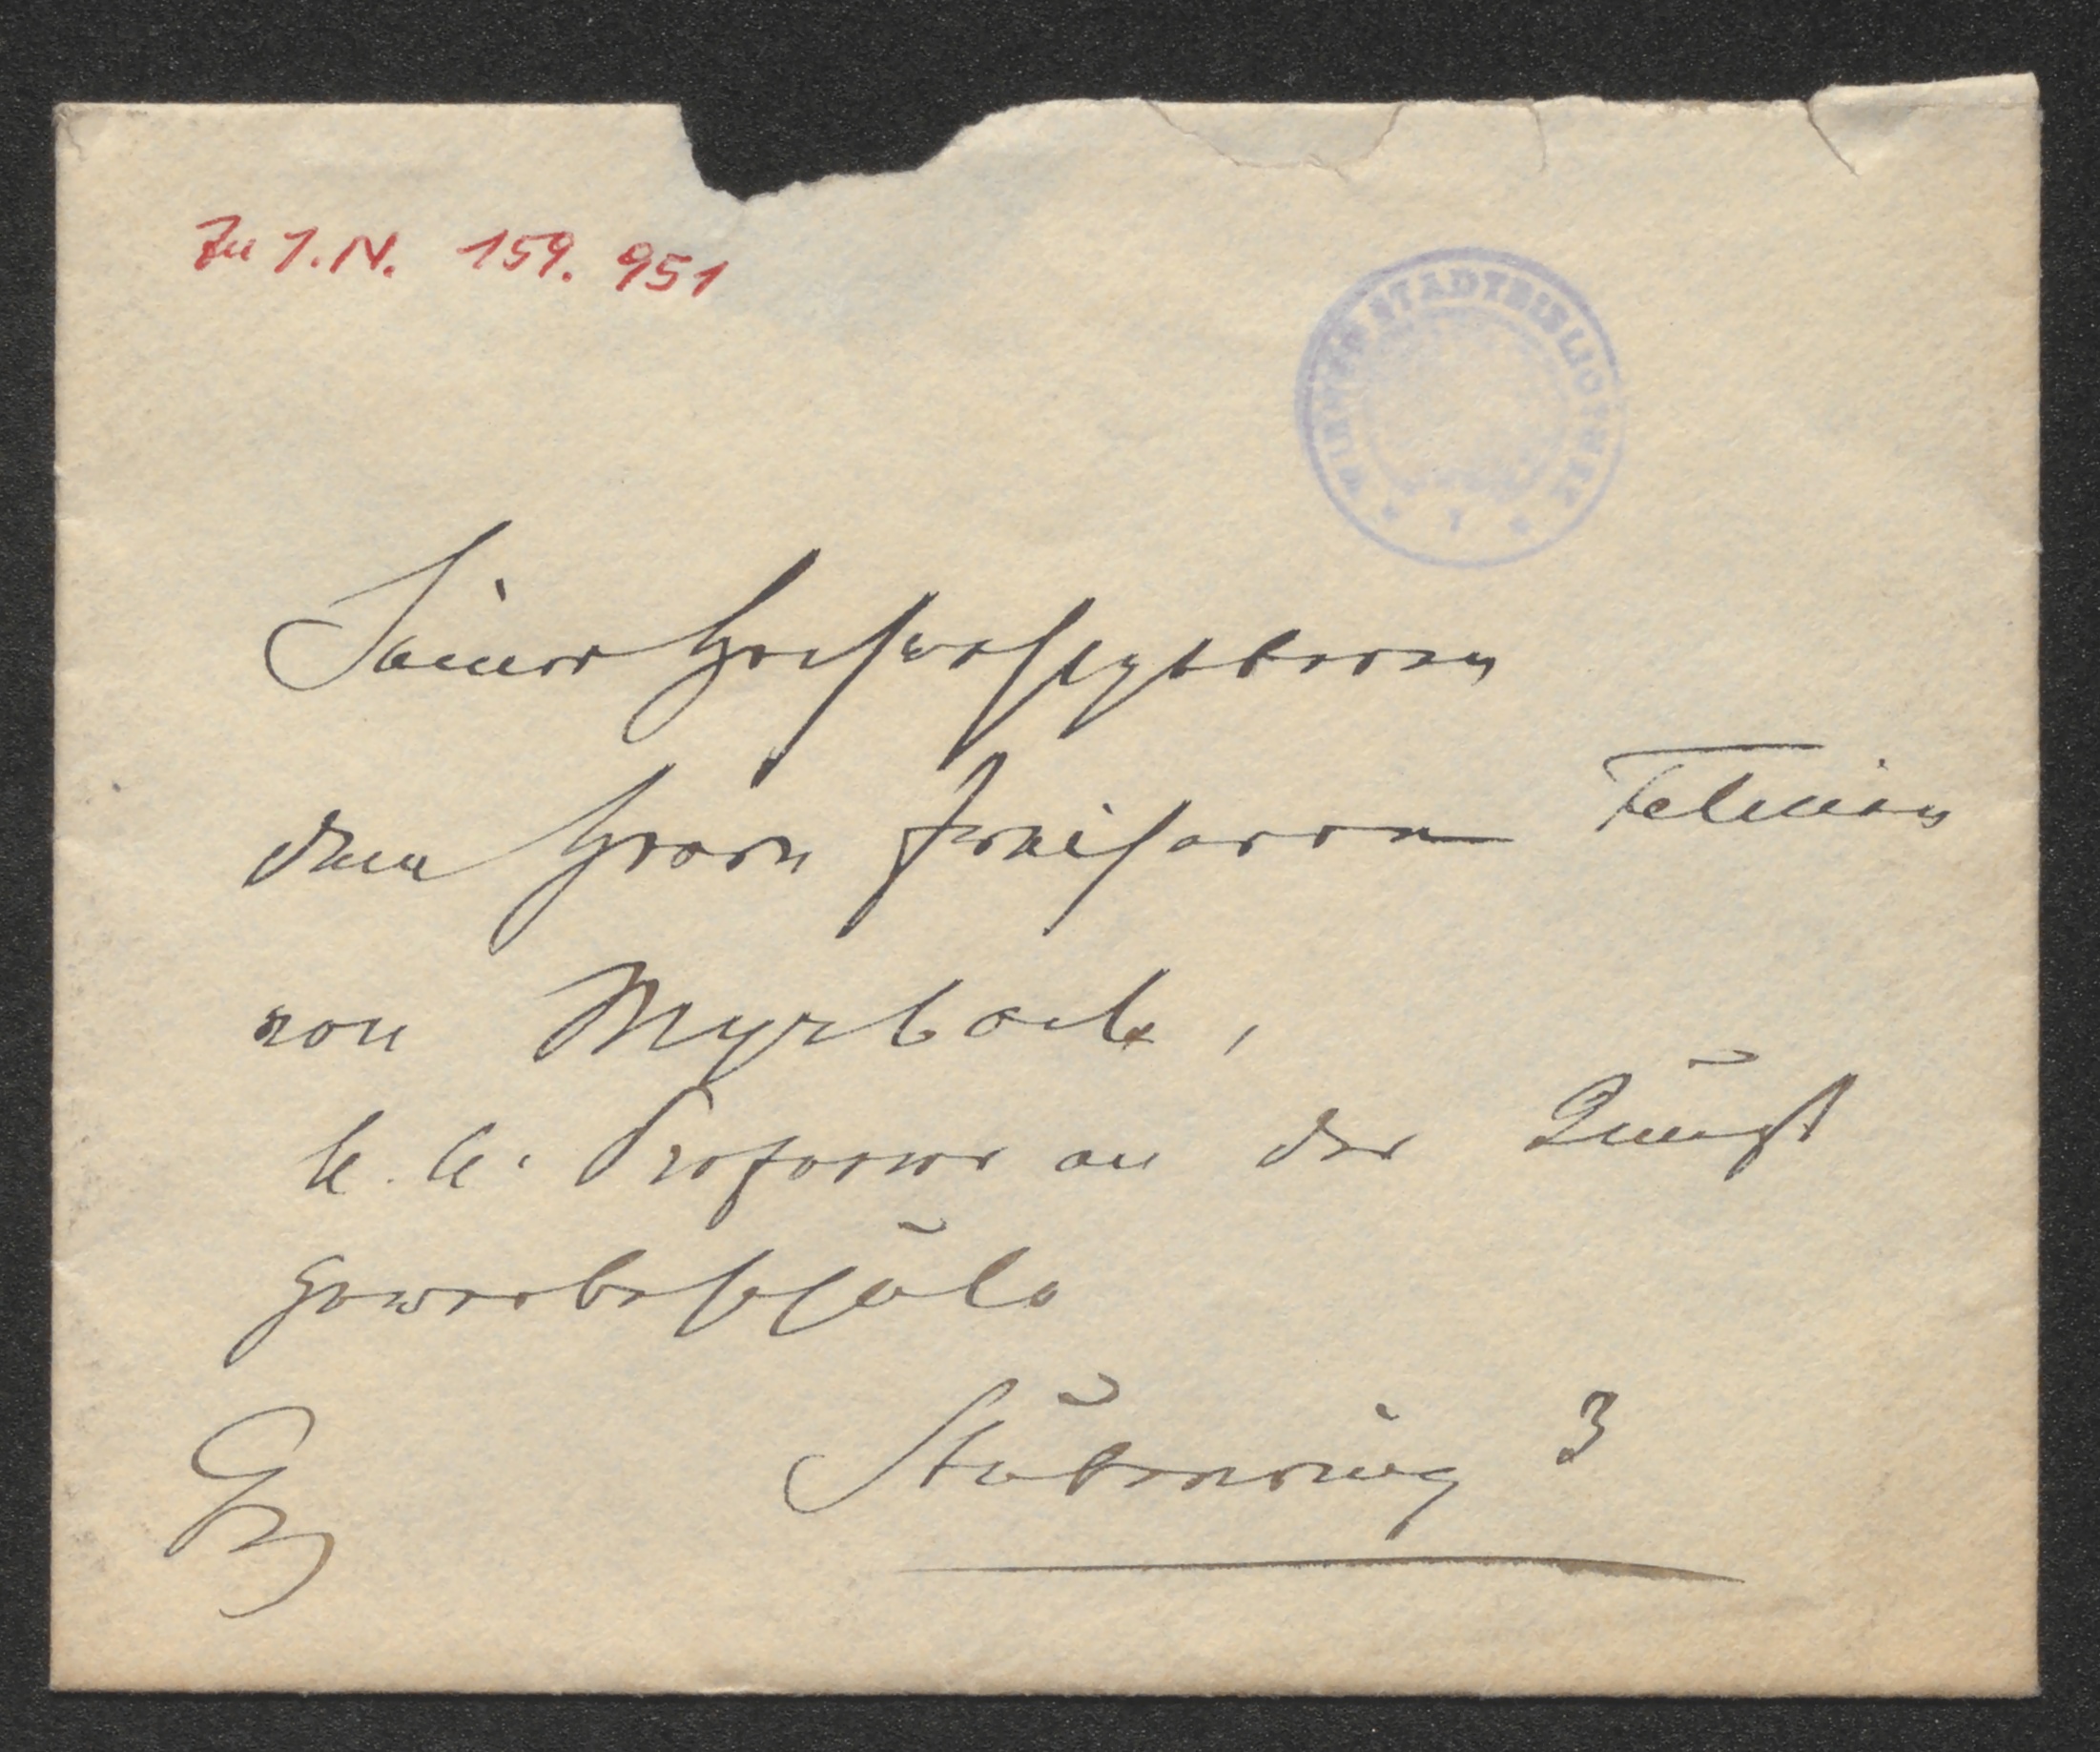 Zu I.N. 159.951
WIENER STADTBIBLIOTHEK
Seiner Hochwohlgeboren
dem Herrn Freiherrn Felician
von Myrbach,
k. k. Professor an der Kunst
gewerbeschule
Stubenring 3